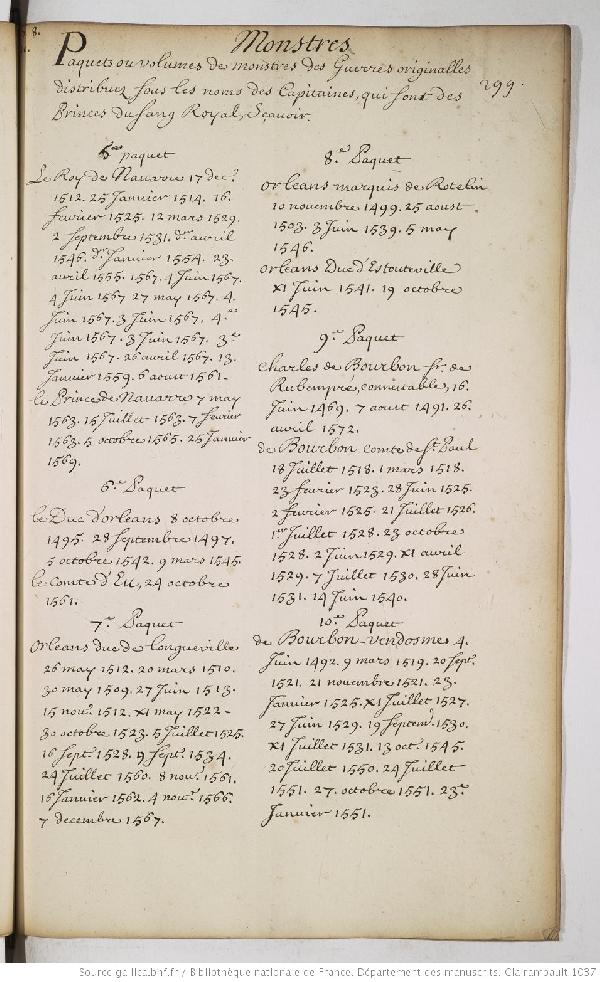 8.
Monstres
Paquets ou volumes de monstres des Guerres originalles
distribuez sous les noms des Capitaines, qui sont des
Princes du sang Royal, Sçavoir.
299.
5.e paquet
Le Roy de Nauarre 17 dec.e
1512. 25 Janvier 1514. 16.
fevrier 1525. 12 mars 1529.
2 Septembre 1531. d.er avril
1546. d.er Janvier 1554. 23.
avril 1555. 1567. 4 Juin 1567.
4 Juin 1567 27 may 1567. 4.
Juin 1567. 3 Juin 1567. 4.e
Juin 1567. 3 Juin 1567. 3.e
Juin 1567. 26 avril 1567. 13.
Janvier 1559. 6 aoust 1561.
le Prince de Nauarre 7 may
1563. 15 Juillet 1563. 7 fevrier
1563. 5 octobre 1565. 25 Janvier
1569.
6.e Paquet
le Duc d'orleans 8 octobre
1495. 28 Septembre 1497.
5 octobre 1542. 9 mars 1545.
le Comte d'Eu, 24 octobre
1561.
7.e Paquet
Orleans duc de Longueville
26 may 1512. 20 mars 1510.
30 may 1509. 27 Juin 1513.
15 nov.e 1512. XI may 1522.
30 octobre 1523. 5 Juillet 1525.
16 Sept.e 1528. 9 Sept.e 1534.
24 Juillet 1560. 8 nov.e 1561.
16 Janvier 1562. 4 nov.e 1566.
7 decembre 1567.
8.e Paquet
Orleans marquis de Rotelin
10 novembre 1499. 25 aoust
1503. 3 Juin 1539. 5 may
1546.
Orleans Duc d'Estouteville
XI Juin 1541. 19 octobre
1545.
9.e Paquet
Charles de Bourbon s.r de
Rubempré, connestable, 16.
Juin 1469. 7 aoust 1491. 26.
avril 1572.
de Bourbon comte de S.t Paul
18 Juillet 1518. 1 mars 1518.
23 fevrier 1523. 28 Juin 1525.
2 fevrier 1525. 21 Juillet 1526.
1.er Juillet 1528. 23 octobre
1528. 2 Juin 1529. XI avril
1529. 7 Juillet 1530. 28 Juin
1531. 14 Juin 1540.
10.e Paquet
de Bourbon-vendosme 4.
Juin 1492. 9 mars 1519. 20 Sept.e
1521. 21 novembre 1521. 23.
Janvier 1525. XI Juillet 1527.
27 Juin 1529. 19 Septem.e 1530.
XI Juillet 1531. 13 oct.e 1545.
20 Juillet 1550. 24 Juillet
1551. 27. octobre 1551. 23.e
Janvier 1551.
Source gallica.bnf.fr / Bibliothèque nationale de France. Département des manuscrits. Clairambault 1037